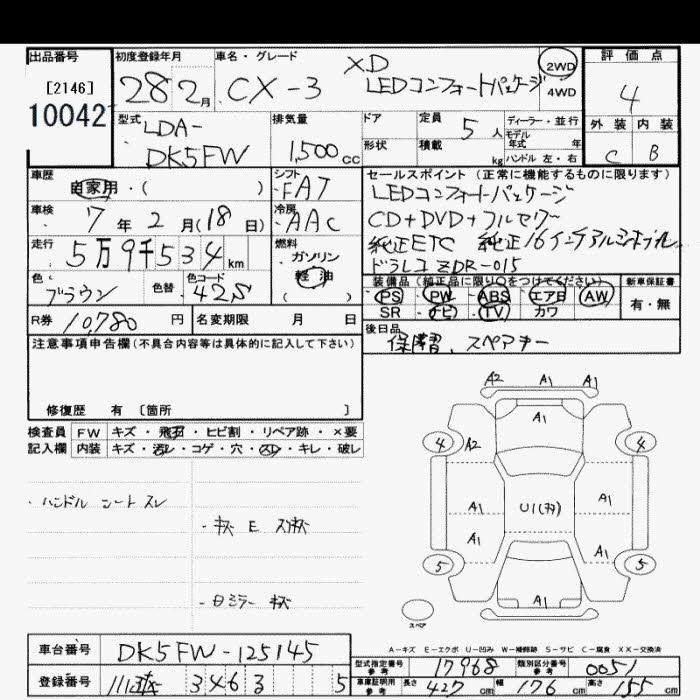 出品番号 初度登録年月 車名・グレード 評価点
[2146] 28 2月 CX-3 XD LEDコンフォートパッケージ 2WD 4WD 4
10042 外装 内装
型式 LDA-DK5FW 排気量 1,500cc ドア 形状 定員 5人 積載 kg ディーラー・並行 モデル年式 年 ハンドル 左・右 C B
車歴 自家用・( ) シフト FAT セールスポイント(正常に機能するものに限ります)
LEDコンフォートパッケージ
車検 7年2月(18日) 冷房 AAC CD+DVD+フルセグ
純正ETC 純正16インチアルミホイル
走行 5万9千534km 燃料 ガソリン 軽油 ( ) ドラレコ ZDR-015
色 ブラウン 色替 色コード 42S 装備品(純正品に限り○をつけてください) 新車保証書
PS・PW・ABS・エアB・AW 有・無
SR・ナビ・TV・カワ
R券 10,780円 名変期限 月 日 後日品
保障書、スペアキー
注意事項申告欄(不具合内容等は具体的に記入して下さい)
修復歴 有 [箇所 ]
検査員 FW キズ・飛石・ヒビ割・リペア跡・×要
記入欄 内装 キズ・汚レ・コゲ・穴・スレ・キレ・破レ
A2 A1 A1
A1
4 A2 4
A1 U1 A1
A1 A1
5 5
A1
スペア
・ハンドル シートスレ
・キズ E スリキズ
・日ミラー キズ
A-キズ E-エクボ U-凹み W-補修跡 S-サビ C-腐食 XX-交換済
車台番号 DK5FW-125145
型式指定番号 参考 17968 類別区分番号 参考 0051
登録番号 3463 5
車庫証明用 参考 長さ 427cm 幅 176cm 高さ 155cm